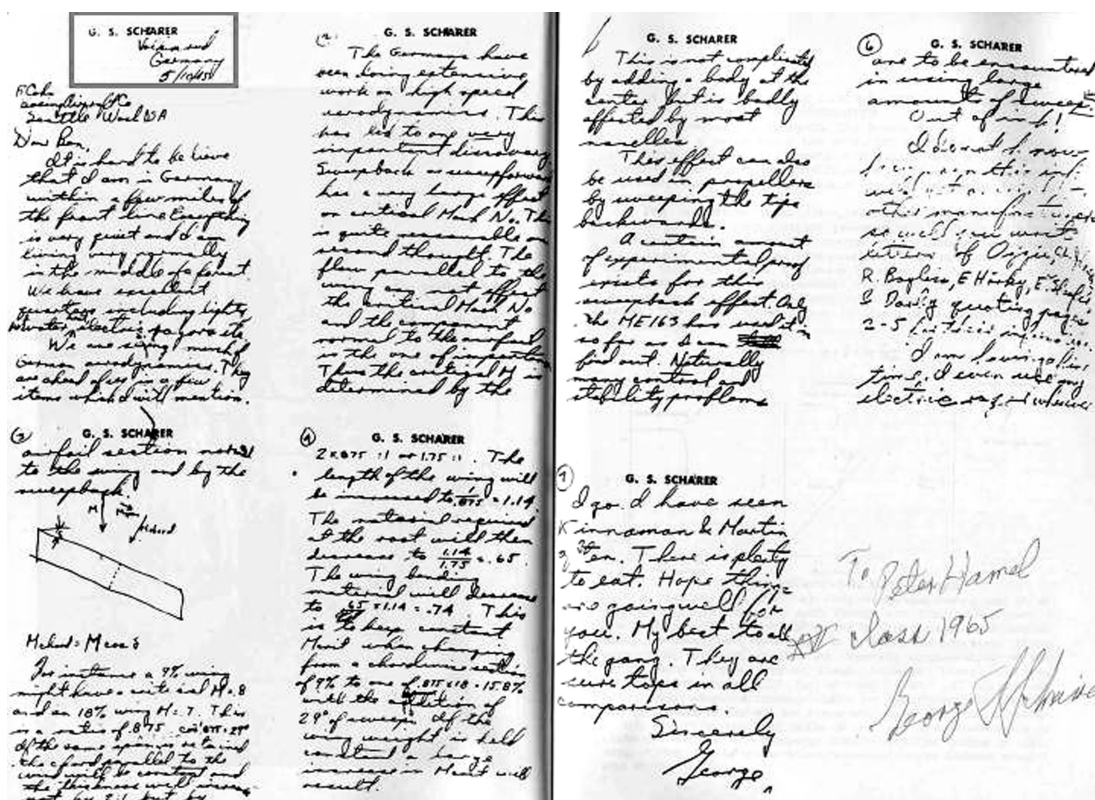 G. S. SCHARER
Germany
5/10/45
Seattle Wash USA
Dear Ben,
It is hard to believe
that I am in Germany
within a few miles of
the front line. Everything
is very quiet and I am
living very normally
in the middle of a forest.
We have excellent
quarters including lights,
water, electric razors etc.
We are seeing much of
German aerodynamics. They
are ahead of us in a few
items which I will mention.
2
G. S. SCHARER
The Germans have
been doing extensive
work on high speed
aerodynamics. This
has led to one very
important discovery.
Sweepback or sweepforward
has a very large effect
on critical Mach No. This
is quite reasonable on
second thought. The
flow parallel to the
wing can not affect
the critical Mach No
and the component
normal to the airfoil
is the one of importance
Thus the critical M is
determined by the
3
G. S. SCHARER
airfoil section normal
to the wing and by the
sweepback.
M
For instance a 9% wing
might have a critical M = .8
and an 18% wing M = .7. This
is a ratio of .875
If the same span is retained
the chord parallel to the
wind will be constant and
the thickness will increase
not by 2:1 but by
4
G. S. SCHARER
2 x .875 :1 or 1.75 :1. The
length of the wing will
be increased to 1/.875 = 1.14.
The material required
at the root will then
decrease to 1.14/1.75 = .65.
The wing bending
material will decrease
to .65 x 1.14 = .74. This
is to keep constant
Mcrit when changing
from a chordwise section
of 9% to one of .875 x 18 = 15.8%
with the addition of
29° of sweep. If the
wing weight is held
constant a large
increase in Mcrit will
result.
G. S. SCHARER
This is not complicated
by adding a body at the
center but is badly
affected by most
nacelles.
This effect can also
be used in propellers
by sweeping the tips
backwards.
A certain amount
of experimental proof
exists for this
sweepback effect. Only
the ME163 has used it
so far as I can
find out. Naturally
many control and
stability problems
6
G. S. SCHARER
are to be encountered
in using large
amounts of sweep.
Out of ink!
I do not
this
other manufacturers
so will you write
letters to
R. Bayliss, E Horky, E. Shafer
& Dailey quoting pages
2-5
I am having a fine
time. I even use my
electric razor wherever
7
G. S. SCHARER
I go. I have seen
Kinnaman & Martin
often. There is plenty
to eat. Hope things
are going well for
you. My best to all
the gang. They are
sure tops in all
comparisons.
Sincerely
George
To Peter Hamel
class 1965
George